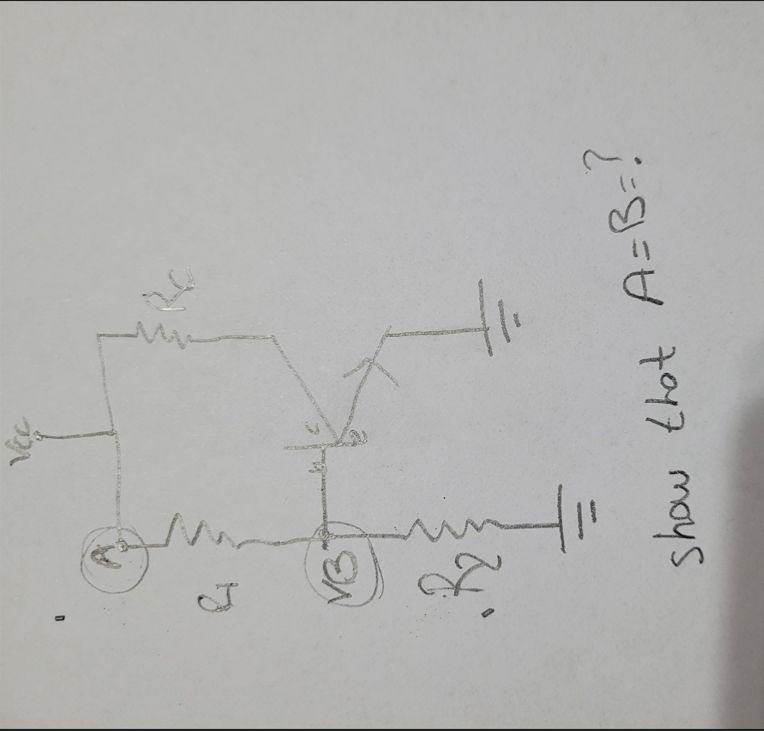 Vcc
Rc
A
R1
c
b
e
VB
R2
show that A=B=?